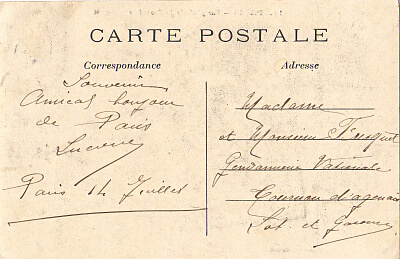 CARTE POSTALE
Correspondance
Adresse
Souvenir
Amical bonjour
de Paris
Lucienne
Paris 14 Juillet
Madame
et Monsieur
Gendarmerie Nationale
Tournon d'agenais
Lot et Garonne